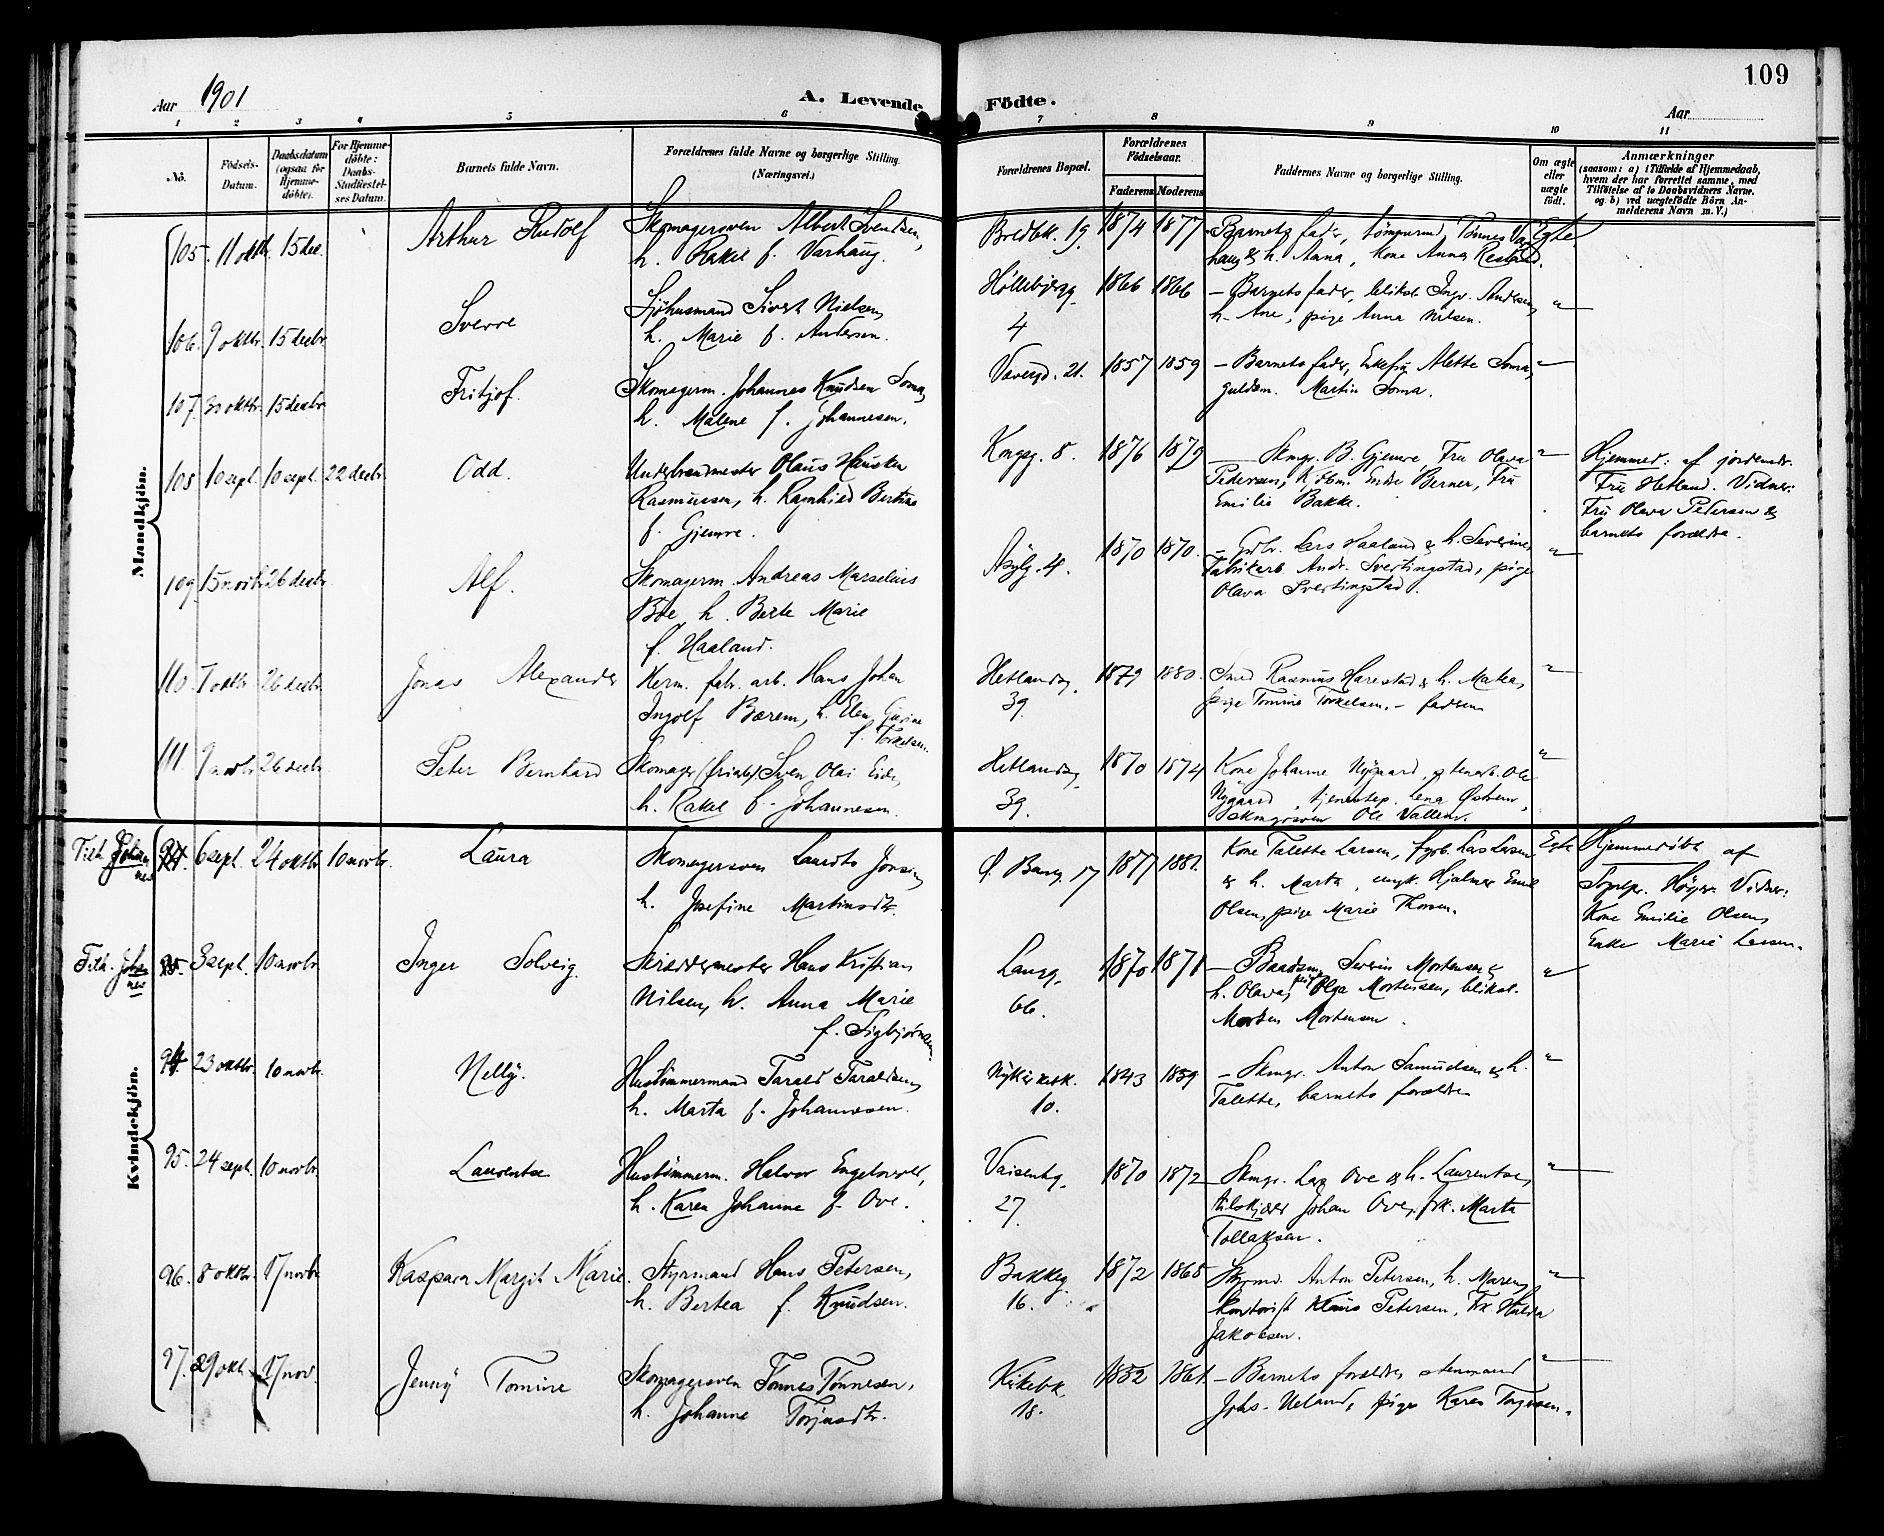 109
Aar 1901
A. Levende Födte.
Aar
1 2 3 4 5 6 7 8 9 10 11
No.
Födsels-
Datum.
Daabsdatum
(ogsaa for
Hjemme-
döbte).
For Hjemme-
döbte:
Daabs-
Stadfæstel-
ses Datum.
Barnets fulde Navn.
Forældrenes fulde Navne og borgerlige Stilling.
(Næringsvei.)
Forældrenes Bopæl.
Forældrenes
Födselsaar.
Faderens Moderens
Faddernes Navne og borgerlige Stilling.
Om ægte
eller
uægte
födt.
Anmærkninger
(saasom: a) i Tilfælde af Hjemmedaab,
hvem der har forrettet samme, med
Tilföielse af to Daabsvidners Navne,
og b) ved uægtefödte Börn An-
melderens Navn m. V.)
Mandkjön.
105. 11 oktb. 15 dec. Arthur Rudolf
Skomagersven Albert Svendsen,
h. Rakel f. Varhaug.
Bredbk. 19. 1874 1877
Barnets fader, tömmermd. Tönnes Var
haug & h. Anna, kone Anna
Egte
106. 9 oktbr. 15 decbr. Sverre
Sjöhusmand Sivert Nielsen,
h. Marie f. Andersen.
Höllebjergg.
4
1866 1866
– Barnets fader, bliksl. Ingv. Andersen,
h. Ane, pige Anna Nilsen.
"
107. 30 oktbr. 15 decbr. Fritjof.
Skomagerm. Johannes Knudsen Soma,
h. Malene f. Johannesen.
Vævergd. 21. 1857 1859
– Barnets fader, Enkefru Alette Soma,
guldsm. Martin Soma.
"
108 10 sept. 10 sept. 22 decbr. Odd.
Underbrandmester Olaus Hausken
Rasmussen, h. Ragnhild Bertine
f. Gjemre.
Kongsg. 8. 1876 1879
– Skmgr. B. Gjemre, Fru Olava
Pedersen, Kjöbm. Endre Berner, Fru
Emilie Bakke.
"
Hjemmed: af jordemdr.
Fru Hetland. Vidner:
Fru Olava Pedersen &
barnets forældre.
109. 15 novbr. 26 decbr. Alf.
Skomagerm. Andreas Marselius
Böe, h. Berte Marie
f. Haaland.
Asylg. 4. 1870 1870.
– Gdbr. Lars Haaland & h. Severine,
Fabrikarb. Andr. Svertingstad, pige
Olava Svertingstad.
"
110. 7 oktbr. 26 decbr. Jonas Alexander
Herm. fabr. arb. Hans Johan
Ingolf Bærem, h. Elen Gurine
f. Torkelsen.
Hetlandsg.
39.
1879 1880.
Smed Rasmus Harestad & h. Malea,
pige Tomine Torkelsen, – faderen
"
111. 9 novbr. 26 decbr. Peter Bernhard
Skomager (friarb.) Sven Olai Eide,
h. Rakel f. Johannesen.
Hetlandsg.
39.
1870 1874
Kone Johanne Nygaard, stenarb. Ole
Nygaard, tjenestep. Lena Östrem,
skmgrsven Ole Vallem.
"
Kvindekjön.
Tilh. Johan
nes
6 sept. 24 oktbr. 10 novbr. Laura
Skomagersven Laurits Jonsen,
h. Josefine Martinsdtr.
Ö. Bang. 17 1877 1881.
Kone Talette Larsen, fyrb. Lars Larsen
& h. Marta, ungk. Hjalmar Emil
Olsen, pige Marie Thorsen.
Egte
Hjemmedöbt af
Sognepr. Höyer. Vidner:
Kone Emilie Olsen,
Enke Marie Larsen.
Tilh. Johan
nes
3 sept. 10 novbr. Inger Solveig.
Skræddermester Hans Kristian
Nilsen, h. Anna Marie
f. Sigbjörnsen.
Langg.
66.
1870 1871
– Baadsm. Severin Mortensen &
h. Olava, pige Olga Mortensen, bliksl.
Morten Mortensen.
"
94. 23 oktbr. 10 novbr. Nelly.
Hustömmermand Tarald Taraldsen,
h. Marta f. Johannesen.
Nykirkebk.
10.
1843 1859
– Skmgr. Anton Samuelsen & h.
Talette, barnets forældre
"
95. 24 sept. 10 novbr. Laurentse
Hustömmerm. Halvor Engelsvold,
h. Karen Johanne f. Ove.
Vaisenhg.
27.
1870 1872
– Skmgr. Lars Ove & h. Laurentse,
tilskjærer Johan Ove, frk. Marta
Tollaksen.
"
96. 8 oktbr. 17 novbr. Kaspara Margit Marie.
Styrmand Hans Petersen,
h. Bertea f. Knudsen.
Bakkeg.
16.
1872 1868
Styrmd. Anton Petersen, h. Maren,
kontorist Klaus Petersen, Frk Hulda
Jakobsen.
"
97. 29 okt. 17 nov. Jenny Tomine
Skomagersven Tönnes Tönnesen,
h. Johanne Torjusdtr.
Kirkebk.
18.
1852 1861.
– Barnets forældre, stenmand
Johs. Ueland, pige Karen Torgersen.
"